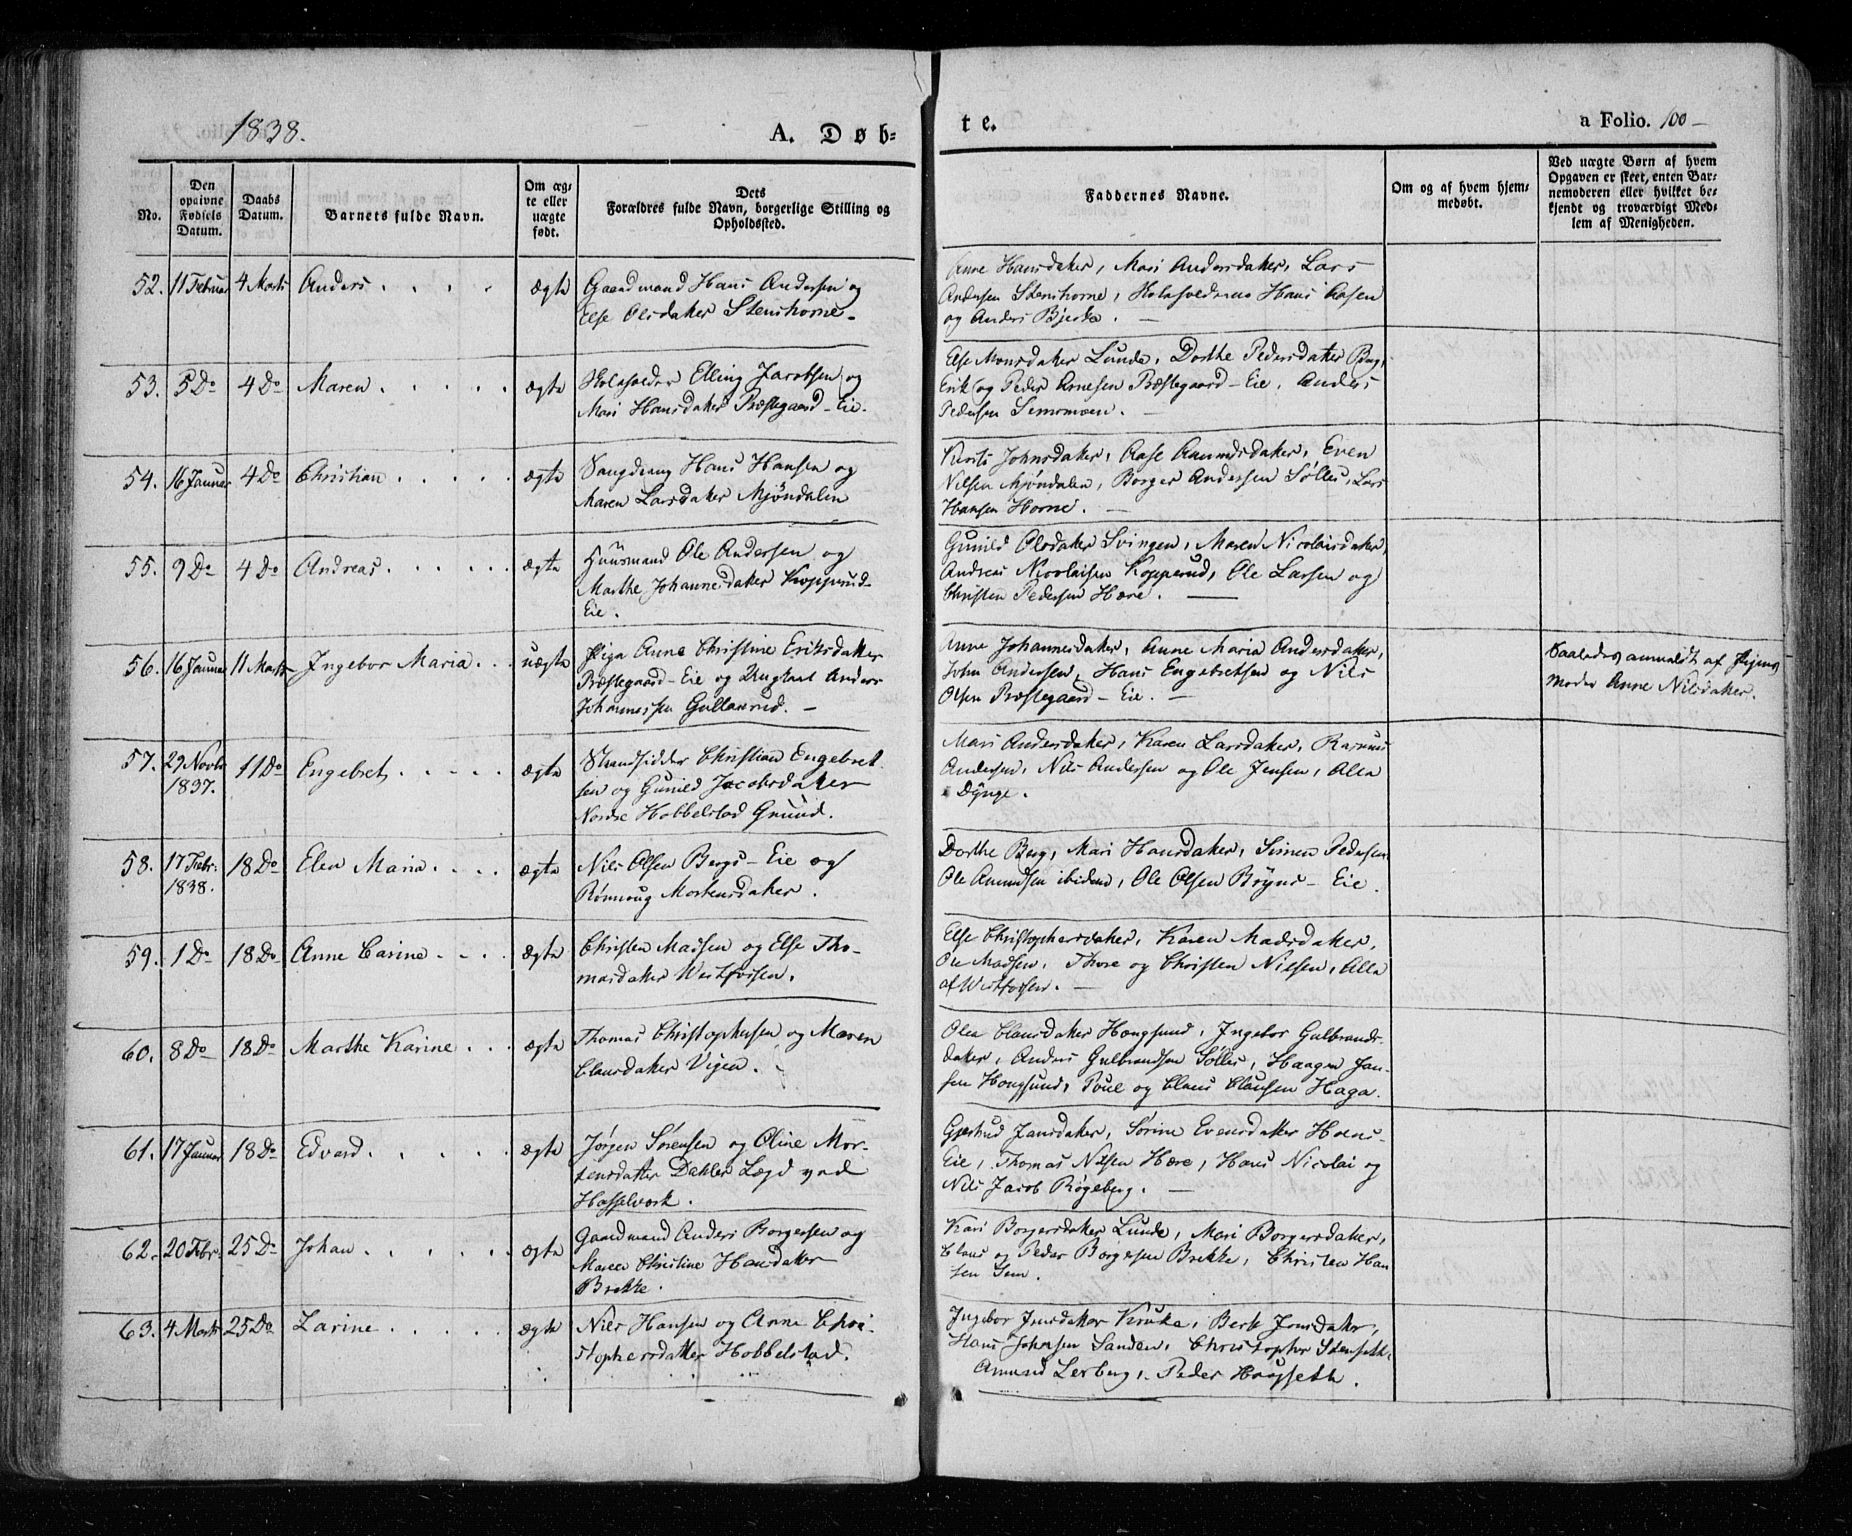 1838.
A. Døb-
te.
a Folio. 100
No.
Den opgivne Fødsels Datum.
Daabs Datum.
Barnets fulde Navn.
Om ægte eller uægte født.
Dets Forældres fulde Navn, borgerlige Stilling og Opholdssted.
Faddernes Navne.
Om og af hvem hjemmedøbt.
Ved uægte Børn af hvem Opgaven er skeet, enten Barnemoderen eller hvilket bekjendt og troværdigt Medlem af Menigheden.
52. 11 Februar 4 Marts Anders ægte
Gaardmand Hans Andersen og
Else Olsdatter Stenshorne
Anne Hansdatter, Mari Andersdatter, Lars
Andersen Stenshorne, Holdsvedrene Hans Aasen
og Anders Bjerke.
53. 5 Do 4 Do Maren ægte
Elling Jacobsen og
Mari Hansdatter Præstegaard-Eie.
Else Monsdatter Lunde, Dorthe Pedersdatter Berg,
Erik og Peder Arnesen Præstegaard-Eie, Anders
Pedersen Semsmoen.
54. 16 Januar 4 Do Christian ægte
Hans Hansen og
Maren Larsdatter Mjøndalen
Johnsdatter, Aase Amundsdatter, Even
Nilsen Mjøndalen, Borger Andersen Solles, Lars
Hansen Horne.
55. 9 Do 4 Do Andreas ægte
Huusmand Ole Andersen og
Marthe Johannesdatter Kopperud-
Eie.
Gunild Olsdatter Svingen, Maren Nicolaisdatter,
Andreas Nicolaisen Kopperud, Ole Larsen og
Christen Pedersen Hære.
56. 16 Januar 11 Marts Ingebor Maria uægte
Pige Anne Christine Eriksdatter
Præstegaard-Eie og Ungkarl Anders
Johannessen Gullaurud.
Anne Johannesdatter, Anne Maria Andersdatter,
John Andersen, Hans Engebretsen og Nils
Olsen Præstegaard-Eie.
Saaledes anmeldt af Pigens
Moder Anne Nilsdatter.
57. 29 Novbr 1837. 11 Do Engebret ægte
Strandsidder Christian Engebret-
sen og Gunild Jacobsdatter
Nordre Hobbelstad Grund.
Mari Andersdatter, Karen Larsdatter, Rasmus
Andersen, Nils Andersen og Ole Jensen, Alle
Dynge.
58. 17 Febr: 1838. 18 Do Elen Maria ægte
Nils Olsen Bergs-Eie og
Rønnoug Mortensdatter.
Dorthe Berg, Mari Hansdatter, Simen Pedersen
Ole Amundsen ibidem, Ole Olsen Bryns-Eie.
59. 1 Do 18 Do Anne Carine ægte
Christen Madsen og Else Tho-
masdatter Westfossen.
Else Christophersdatter, Karen Madsdatter,
Ole Madsen, Thore og Christen Nilsen, Alle
af Westfossen.
60. 8 Do 18 Do Marthe Karine ægte
Thomas Christophersen og Maren
Clausdatter Vigen.
Olea Clausdatter Hougsund, Ingebor Gulbrands-
datter, Anders Gulbrandsen Solles, Haagen Jan-
sen Hougsund, Poul og Claus Clausen Haga.
61. 17 Januar 18 Do Edvard ægte
Jørgen Sørensen og Oline Mor-
tensdatter Dahler Lægd ved
Hasselværk.
Gjertrud Jansdatter, Sørine Evensdatter Hoens-
Eie, Thomas Nilsen Hære, Hans Nicolai og
Nils Jacob Røgeberg.
62. 20 Febr. 25 Do Johan ægte
Gaardmand Anders Borgersen og
Maren Christine Hansdatter
Brekke.
Kari Borgersdatter Lunde, Mari Borgersdatter,
Claus og Peder Borgersen Brekke, Christen Han-
sen Sem.
63. 4 Marts 25 Do Larine ægte
Nils Hansen og Anne Chri-
stophersdatter Hobbelstad.
Ingebor Jensdatter Kruke, Berte Jensdatter,
Hans Johnsen Sanden, Christopher Stenseth,
Amund Lerberg, Peder Hougseth.